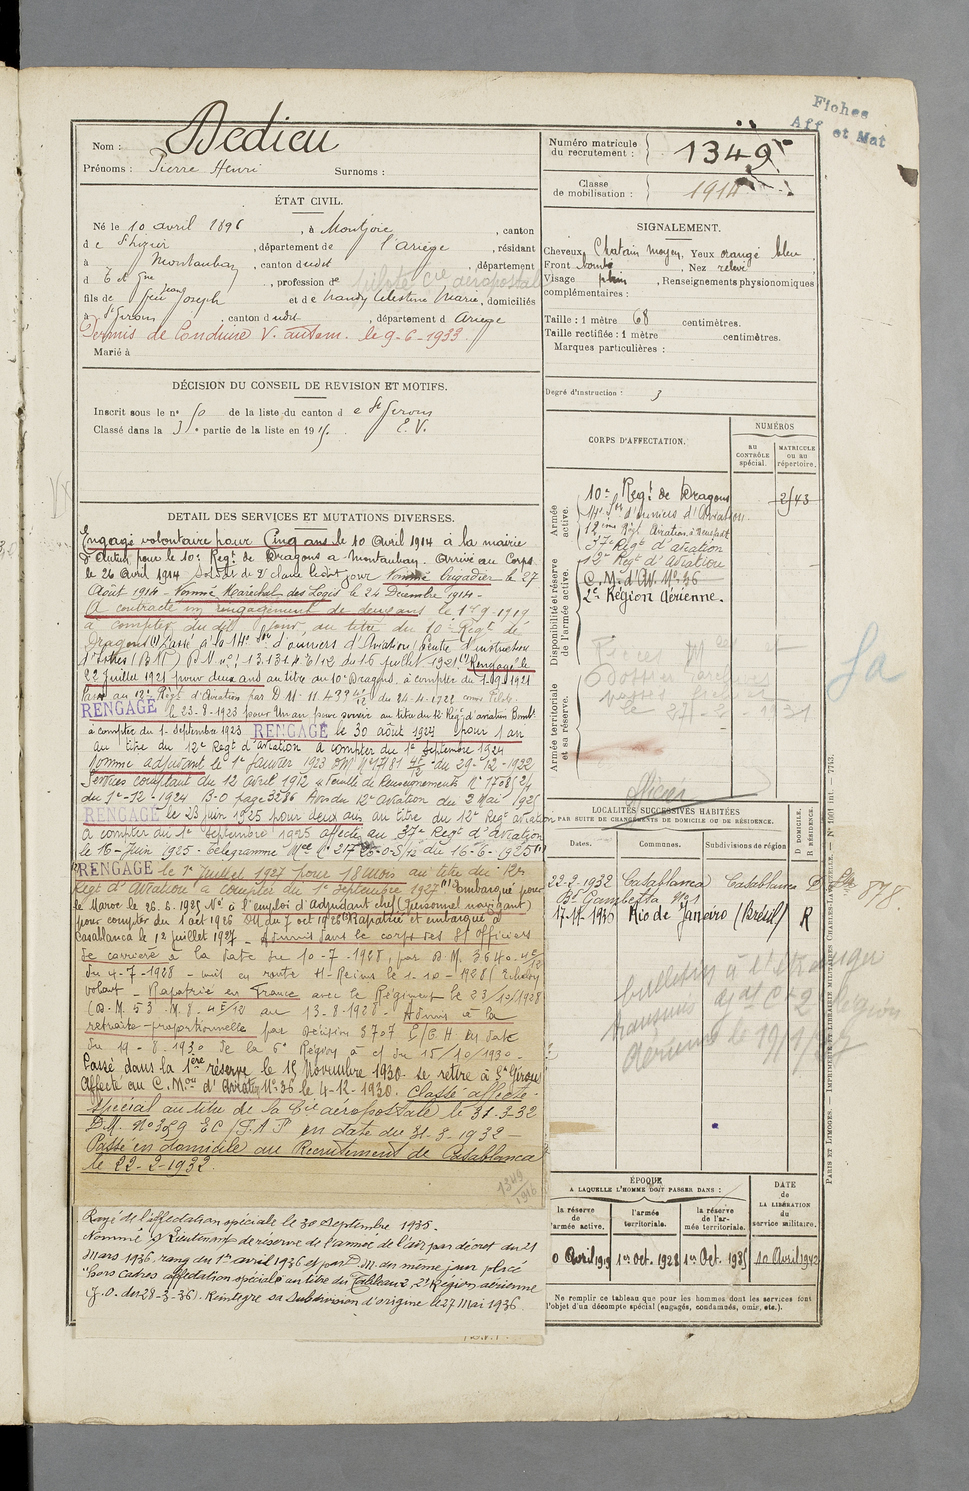 Fiches
Aff et Mat
Nom : Dedieu
Prénoms : Pierre Henri Surnoms :
Numéro matricule du recrutement : 1349
Classe de mobilisation : 1914
ÉTAT CIVIL.
Né le 10 avril 1896, à Montjoie, canton
de St Girons, département de l'Ariège, résidant
à Montauban, canton dudit, département
d T et Gne, profession de pilote Cie aéropostale
fils de feu Jean Joseph et de Nandy Célestine Marie, domiciliés
à St Girons, canton dudit, département d Ariège
Permis de Conduire V. autom. le 9-6-1933.
Marié à
SIGNALEMENT.
Cheveux Chatain moyen, Yeux orangé bleu
Front bombé, Nez relevé
Visage plein, Renseignements physionomiques
complémentaires :
Taille : 1 mètre 68 centimètres.
Taille rectifiée : 1 mètre centimètres.
Marques particulières :
Degré d'instruction : 3
DÉCISION DU CONSEIL DE REVISION ET MOTIFS.
Inscrit sous le n° 50 de la liste du canton de St Girons
Classé dans la 3e partie de la liste en 1915. E. V.
DETAIL DES SERVICES ET MUTATIONS DIVERSES.
Engagé volontaire pour Cinq ans le 10 Avril 1914 à la mairie
pour le 10e Regt de Dragons a Montauban. Arrivé au Corps
le 26 Avril 1914 Soldat de 2e classe ledit jour Nommé brigadier le 27
Août 1914 - Nommé Marechal des Logis le 24 Décembre 1914 -
A contracté un rengagement de deux ans le 1er 9-1919
à compter du dit jour, au titre du 10e Regt de
Dragons Passé à le 14e d'ouvriers d'Aviation (Centre d'instruction
du 16 juillet 1921. Rengagé le
22 Juillet 1921 pour deux ans au titre du 10e Dragons, à compter du 1-9-1921
Passé au 12e Regt d'Aviation par D.M. du 24-4-1922 comme Pilote.
RENGAGÉ le 23-8-1923 pour Un an pour servir au titre du 12e Regt d'aviation Bombt
à compter du 1er Septembre 1923 RENGAGÉ le 30 août 1924 pour 1 an
au titre du 12e Regt d'aviation à compter du 1er Septembre 1924
Nommé adjudant le 1er Janvier 1923 DM N° 17181 du 29-12-1922
Services comptant du 12 Avril 1912
du 1er-12-1924 B.O page 3286 Avis du 12e Aviation du 2 Mai 1925
RENGAGÉ le 23 Juin 1925 pour deux ans au titre du 12e Regt aviation
à compter du 1er Septembre 1925 affecté au 37e Regt d'aviation
le 16-Juin 1925 - Télégramme du 16-6-1925
RENGAGÉ le 1er Juillet 1927 pour 18 Mois au titre du 12e
Regt d'Aviation à compter du 1er Septembre 1927 Embarqué pour
le Maroc le 26.6.1925 Né à l'emploi d'Adjudant chef (Personnel navigant)
pour compter du 1er oct 1926 DM du 7 oct 1926 Rapatrié et embarqué à
Casablanca le 12 juillet 1927 - Admis dans le corps des S/ Officiers
de carrière à la date du 10-7-1928, par D.M. 3640
du 4-7-1928 - mis en route St-Reims le 1-10-1928
volant - Rapatrié en France avec le Régiment le 23/10/1928
(D.M. 53 M.8-4E/12 du 13-8-1928 - Admis à la
retraite proportionnelle par décision 8707 E/G.H en date
du 19-8-1930 de la 6e Région à cf du 15/10/1930 -
Passé dans la 1ère réserve le 18 Novembre 1930. se retire à St Girons
Affecté au C. Mou d'Aviation N° 36 le 4-12-1930. Classé affecté
spécial au titre de la Cie aéropostale le 31-3-32
D.M. N° 389 EC/F.A.P en date du 31-3-1932 -
Passé en domicile au Recrutement de Casablanca
le 22-2-1932.
1349
1916
Rayé de l'affectation spéciale le 30 Septembre 1935.
Nommé S/ Lieutenant de réserve de l'armée de l'air par décret du 21
Mars 1936, rang du 1er avril 1936 et par D.M. du même jour placé
"hors cadres affectation spéciale" au titre du Tableau 2, 2e Région aérienne
(J.O. du 28-3-36). Réintégré sa subdivision d'origine le 27 Mai 1936
CORPS D'AFFECTATION.
NUMÉROS
AU CONTRÔLE spécial.
MATRICULE OU AU répertoire.
Armée active.
Disponibilité et réserve de l'armée active.
Armée territoriale et sa réserve.
10e Regt de Dragons 2543
d'ouvriers d'Aviation.
12ème Régt Aviation à Neustadt
37e Régt d'aviation
12e Régt d'Aviation
C. M. d'Av. N° 36
2e Région Aérienne.
Pièces
dossier
le 27-2-1931
officier
LOCALITÉS SUCCESSIVES HABITÉES
PAR SUITE DE CHANGEMENTS DE DOMICILE OU DE RÉSIDENCE.
Dates. Communes. Subdivisions de région D. DOMICILE. R. RÉSIDENCE.
22-2-1932 Casablanca Casablanca D
Bd Gambetta
17-11-1930 Rio de Janeiro (Brésil) R
878.
bulletin à l'étranger
transmis
le 19/1/37
ÉPOQUE
A LAQUELLE L'HOMME DOIT PASSER DANS :
la réserve de l'armée active.
l'armée territoriale.
la réserve de l'armée territoriale.
DATE de LA LIBÉRATION du service militaire.
10 Avril 1919 1er Oct. 1928 1er Oct. 1935 10 Avril 1942
Ne remplir ce tableau que pour les hommes dont les services font
l'objet d'un décompte spécial (engagés, condamnés, omis, etc.).
PARIS ET LIMOGES. — IMPRIMERIE ET LIBRAIRIE MILITAIRES CHARLES-LAVAUZELLE. — N° 1901 int. — 7743.